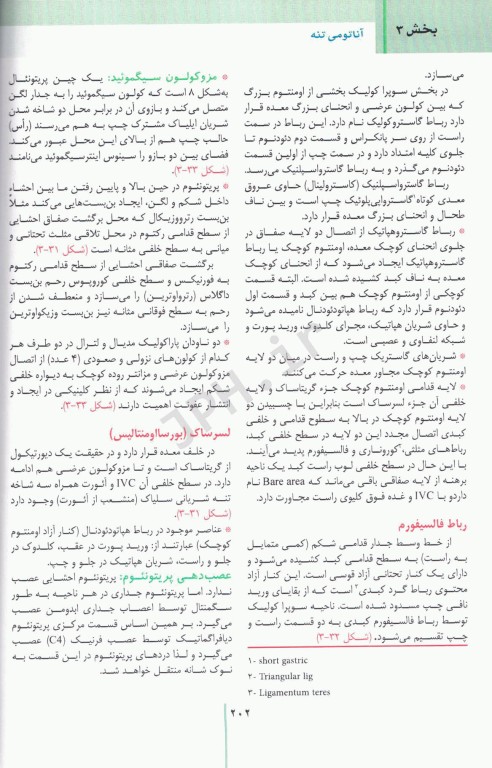 بخش ۳
آناتومی تنه
می‌سازد.
در بخش سوپرا کولیک بخشی از اومنتوم بزرگ
که بین کولون عرضی و انحنای بزرگ معده قرار
دارد رباط گاستروکولیک نام دارد. این رباط در سمت
راست از روی سر پانکراس و قسمت دوم دئودنوم تا
جلوی کلیه امتداد دارد و در سمت چپ از اولین قسمت
دئودنوم می‌گذرد و به رباط گاسترواسپلنیک می‌رسد.
رباط گاسترواسپلنیک (کاسترولینال) حاوی عروق
معدی کوتاه¹گاستروایپلوئیک چپ است و بین ناف
طحال و انحنای بزرگ معده قرار دارد.
* رباط گاستروهپاتیک از اتصال دو لایه صفاق در
جلوی انحنای کوچک معده، اومنتوم کوچک یا رباط
گاستروهپاتیک ایجاد می‌شود که از انحنای کوچک
معده به ناف کبد کشیده شده است. البته قسمت
کوچکی از اومنتوم کوچک هم بین کبد و قسمت اول
دئودنوم قرار دارد که رباط هپاتودئودنال نامیده می‌شود
و حاوی شریان هپاتیک، مجرای کلدوک، ورید پورت و
شبکه لنفاوی و عصبی است.
* شریان‌های گاستریک چپ و راست در میان دو لایه
اومنتوم کوچک مجاور معده حرکت می‌کنند.
* لایه قدامی اومنتوم کوچک جزء گریتاساک و لایه
خلفی آن جزء لسرساک است بنابراین با چسبیدن دو
لایه اومنتوم کوچک در بالا به سطوح قدامی و خلفی
کبدی اتصال مجدد این دو لایه در سطح خلفی کبد،
رباط‌های مثلثی،²کوروناری و فالسیفورم پدید می‌آیند.
با این حال در سطح خلفی لوب راست کبد یک ناحیه
برهنه از لایه صفاقی باقی می‌ماند که Bare area نام
داردو با IVC و غده فوق کلیوی راست مجاورت دارد.
رباط فالسیفورم
از خط وسط جدار قدامی شکم (کمی متمایل
به راست) به سطح قدامی کبد کشیده می‌شود و
دارای یک کنار تحتانی آزاد قوسی است. این کنار آزاد
محتوی رباط گرد کبدی³ است که از بقایای ورید
نافی چپ مسدود شده است. ناحیه سوپرا کولیک
توسط رباط فالسیفورم کبدی به دو قسمت راست و
چپ تقسیم می‌شود. (شکل ۳۲-۳)
1- short gastric
2- Triangular lig
3- Ligamentum teres
* مزوکولون سیگموئید: یک چین پریتونئال
به‌شکل ۸ است که کولون سیگموئید را به جدار لگن
متصل می‌کند و بازوی آن در برابر محل دو شاخه شدن
شریان ایلیاک مشترک چپ به هم می‌رسند (رأس)
حالب چپ هم از بالای این محل عبور می‌کند.
فضای بین دو بازو را سینوس اینترسیگموئید می‌نامند
(شکل ۳۳-۳).
* پریتونئوم در حین بالا و پایین رفتن ما بین احشاء
داخل شکم و لگن، ایجاد بن‌بست‌هایی می‌کند مثلاً
بن‌بست رترووزیکال که محل برگشت صفاق احشایی
از سطح قدامی رکتوم در محل تلاقی مثلث تحتانی و
میانی به سطح خلفی مثانه است (شکل ۳۱-۳).
برگشت صفاقی احشایی از سطح قدامی رکتوم
به فورنیکس و سطح خلفی کورپوس رحم بن‌بست
داگلاس (رترواوترین) را می‌سازد و منعطف شدن از
رحم به سطح فوقانی مثانه نیز بن‌بست وزیکواوترین
را می‌سازد.
* دو ناودان پاراکولیک مدیال و لترال در دو طرف هر
کدام از کولون‌های نزولی و صعودی (۴ عدد) از اتصال
مزوکولون عرضی و مزانتر روده کوچک به دیواره خلفی
شکم ایجاد می‌شوند که از نظر کلینیکی در ایجاد و
انتشار عفونت اهمیت دارند (شکل ۳۳-۳).
لسرساک (بورسااومنتالیس)
در خلف معده قرار دارد و در حقیقت یک دیورتیکول
از گریتاساک است و تا مزوکولون عرضی هم ادامه
دارد. در سطح خلفی آن IVC و آئورت همراه سه شاخه
تنه شریانی سلیاک (منشعب از آئورت) وجود دارد
(شکل ۳۱-۳).
* عناصر موجود در رباط هپاتودئودنال (کنار آزاد اومنتوم
کوچک) عبارتند از: ورید پورت در عقب، کلدوک در
جلو و راست، شریان هپاتیک در جلو و چپ.
عصب‌دهی پریتونئوم: پریتونئوم احشایی عصب
ندارد. اما پریتونئوم جداری در هر ناحیه به طور
سگمنتال توسط اعصاب جداری ابدومن عصب
می‌گیرد. بر همین اساس قسمت مرکزی پریتونئوم
دیافراگماتیک توسط عصب فرنیک (C4) عصب
می‌گیرد و لذا دردهای پریتونئوم در این قسمت به
نوک شانه منتقل خواهد شد.
۲۰۲